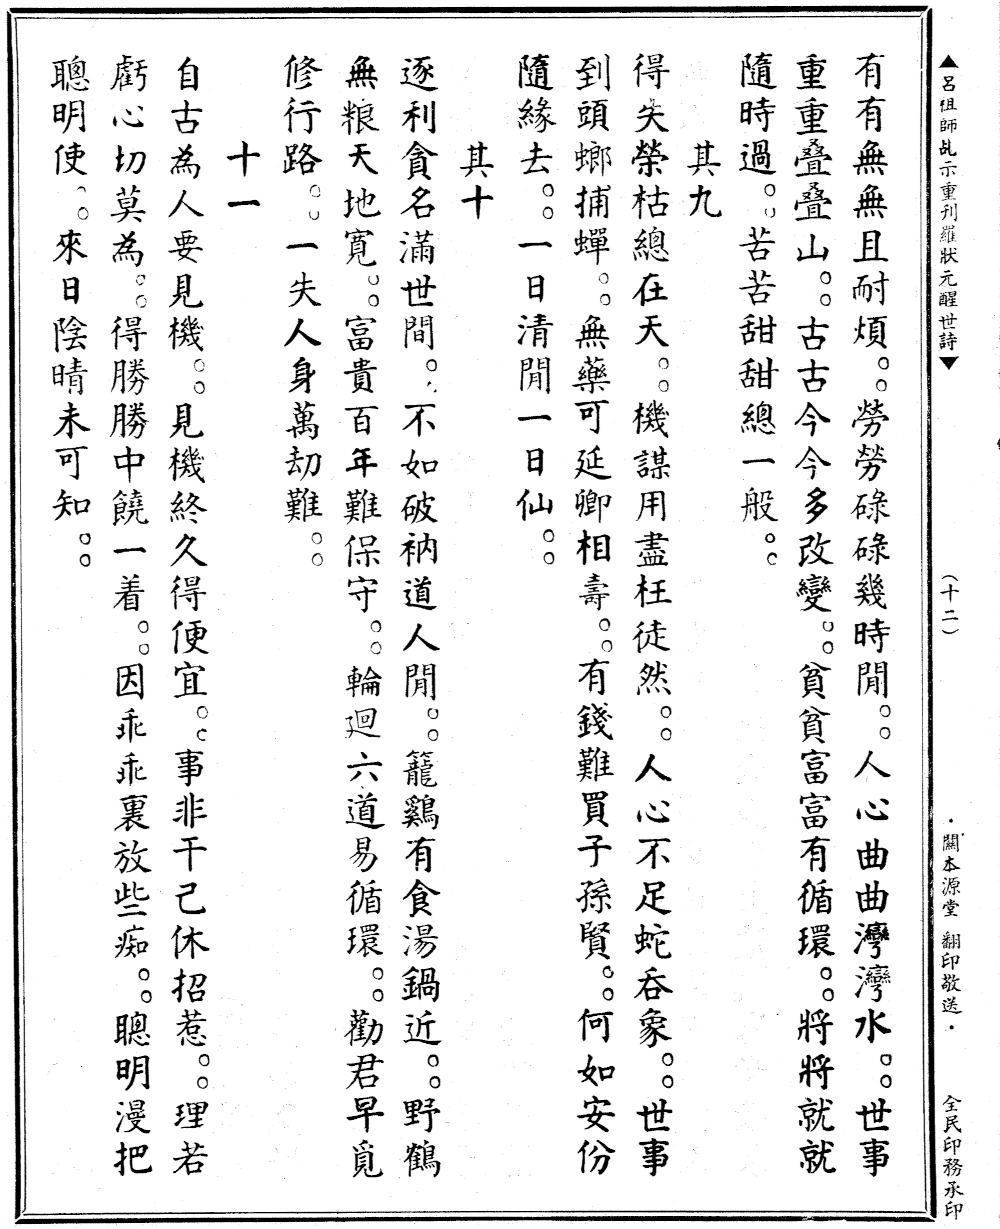 ▲呂祖師乩示重刊羅狀元醒世詩▼ （十二） ·關本源堂 翻印敬送· 全民印務承印
有有無無且耐煩。。勞勞碌碌幾時閒。。人心曲曲灣灣水。。世事
重重疊疊山。。古古今今多改變。。貧貧富富有循環。。將將就就
隨時過。。苦苦甜甜總一般。。
其九
得失榮枯總在天。。機謀用盡枉徒然。。人心不足蛇吞象。。世事
到頭螂捕蟬。。無藥可延卿相壽。。有錢難買子孫賢。。何如安份
隨緣去。。一日清閒一日仙。。
其十
逐利貪名滿世間。。不如破衲道人閒。。籠鷄有食湯鍋近。。野鶴
無粮天地寬。。富貴百年難保守。。輪迴六道易循環。。勸君早覓
修行路。。一失人身萬劫難。。
十一
自古為人要見機。。見機終久得便宜。。事非干己休招惹。。理若
虧心切莫為。。得勝勝中饒一着。。因乖乖裏放些痴。。聰明漫把
聰明使。。來日陰晴未可知。。